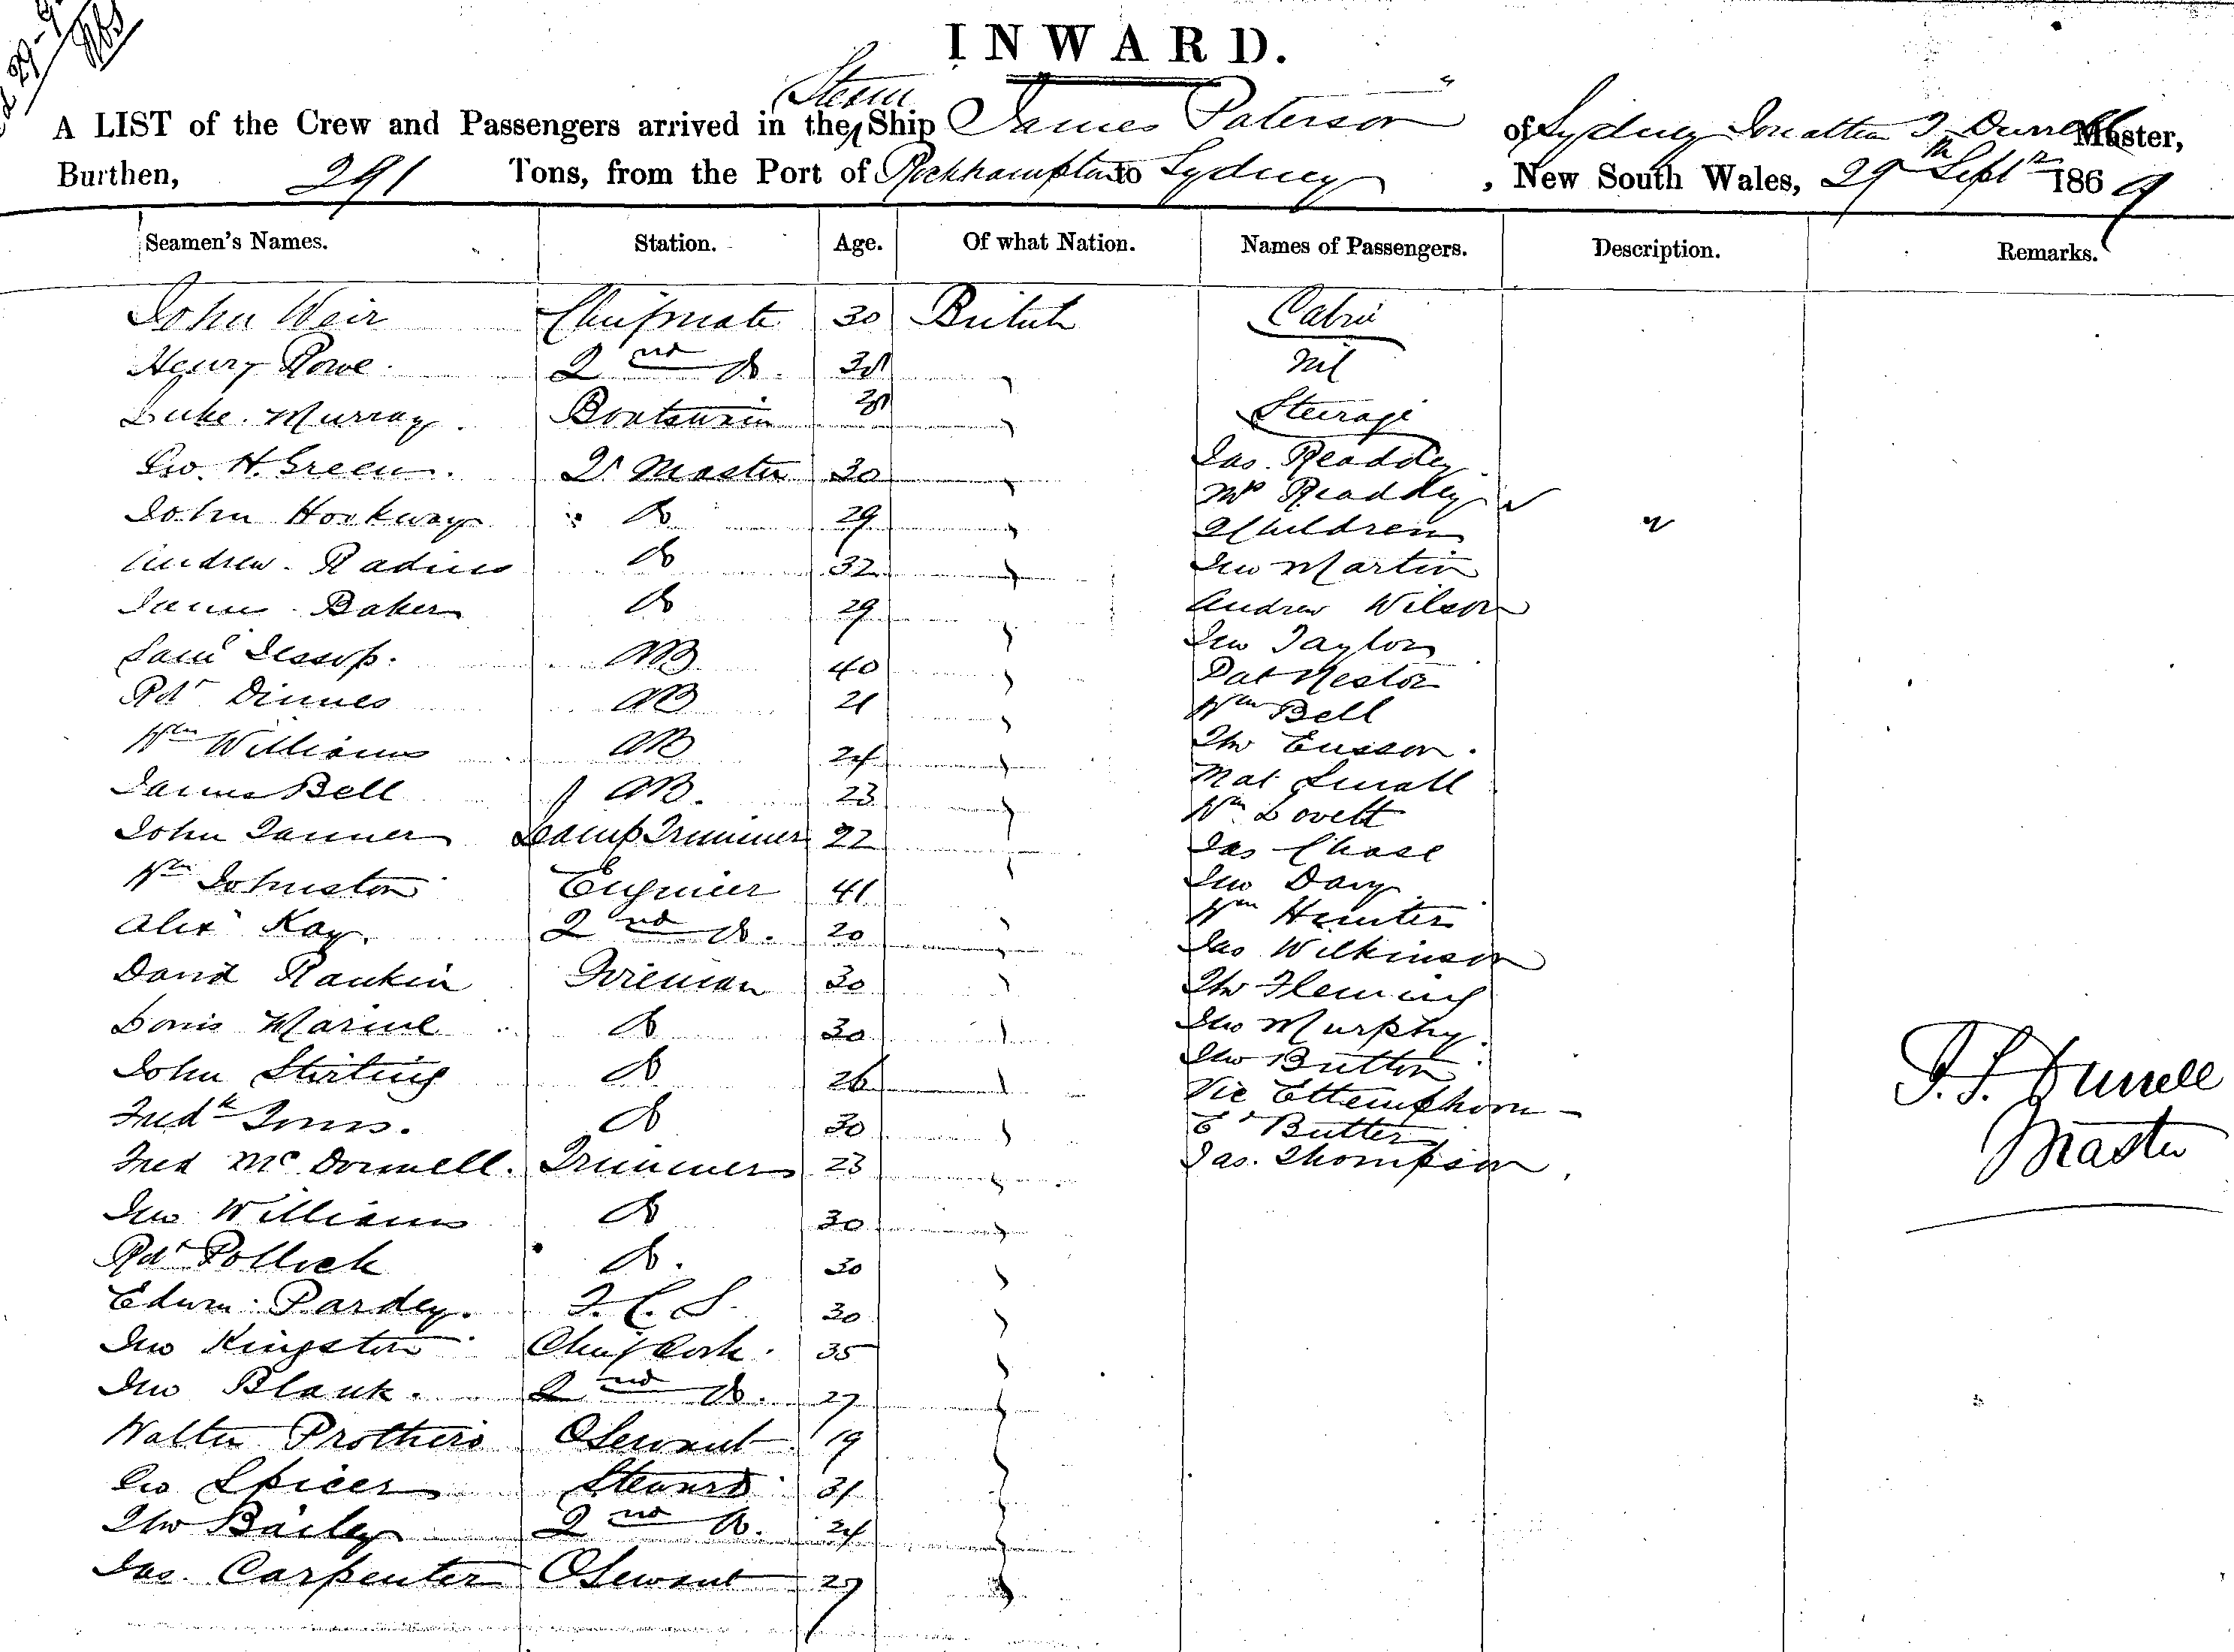 INWARD.
Steam
A LIST of the Crew and Passengers arrived in the Ship "James Paterson" of Sydney Jonathan Durrell Master,
Burthen, 291 Tons, from the Port of Rockhampton to Sydney, New South Wales, 29th Sept 1869
Seamen's Names. Station. Age. Of what Nation. Names of Passengers. Description. Remarks.
John Weir Chief mate 30 British Cabin
Henry Rowe. 2nd do. Nil
Luke Murray. Boatswain Steerage
Geo. H. Green. Qr Master 30 Jas. Readdey
Mrs Readdey
John Hookway do 29 2 Children
Andrew Radins do 32 Jno Martin
James Baker do 29 Andrew Wilson
Jno Taylor
Saml Jessop. AB 40 Pat Nestor
Rdt Dinnes AB 21 Wm Bell
Wm Williams AB 24 Thos
Mat Small
James Bell AB. 23 Wm Lovett
John Tanner Lamp Trimmer 22 Jas Chase
Wm Johnston Engineer 41 Jno Davy
Wm Hunter
Alexr Kay. 2nd do. 20 Jas Wilkinson
David Rankin Fireman 30 Thos Fleming
Marine do 30 Jno Murphy.
John Stirling do 26 Jno Button
Vic
Fredk do 30 Ed Butter
Fred McDonnell. Trimmer 23 Jas. Thompson
Jno Williams do 30
Rdt Pollock do. 30
Edwin Pardey. F. C. S. 30
Jno Kingston Chief Cook. 35
Jno Blank. 2nd do. 27
Walter Prothero O Servant 19
Geo Spicer Steward 31
Thos Bailey 2nd do. 24
Jas. Carpenter O Servant 27
J. S. Durrell
Master